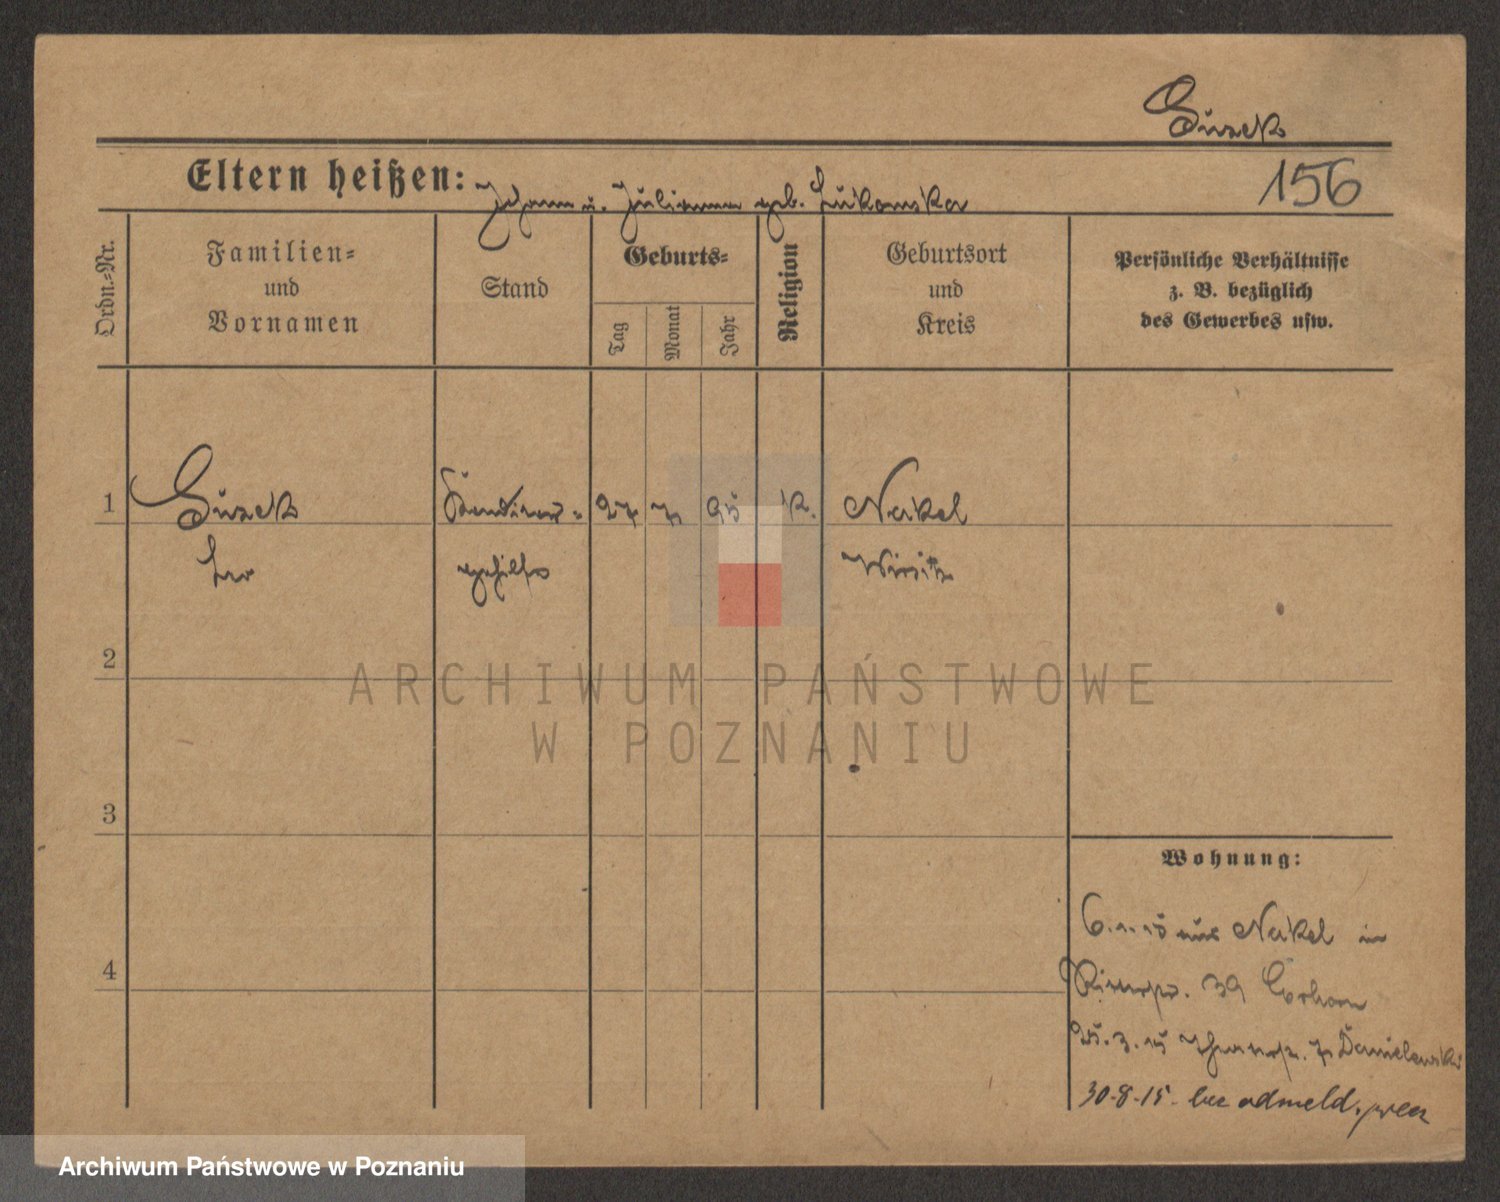 Guzek
Eltern heißen: Johann u. Julianna geb. Lukowska
156
Ordn.-Nr.
Familien-
und
Vornamen
Stand
Geburts-
Tag
Monat
Jahr
Religion
Geburtsort
und
Kreis
Persönliche Verhältnisse
z. B. bezüglich
des Gewerbes usw.
1 Guzek 27 7 95 k. Nakel
Leo gehilfe Wirsitz
2
3
4
ARCHIWUM PAŃSTWOWE
W POZNANIU
Wohnung:
6.1.15 aus Nakel in
39
25.3.15 7 Danielewski
30-8-15- bez odmeld.
Archiwum Państwowe w Poznaniu